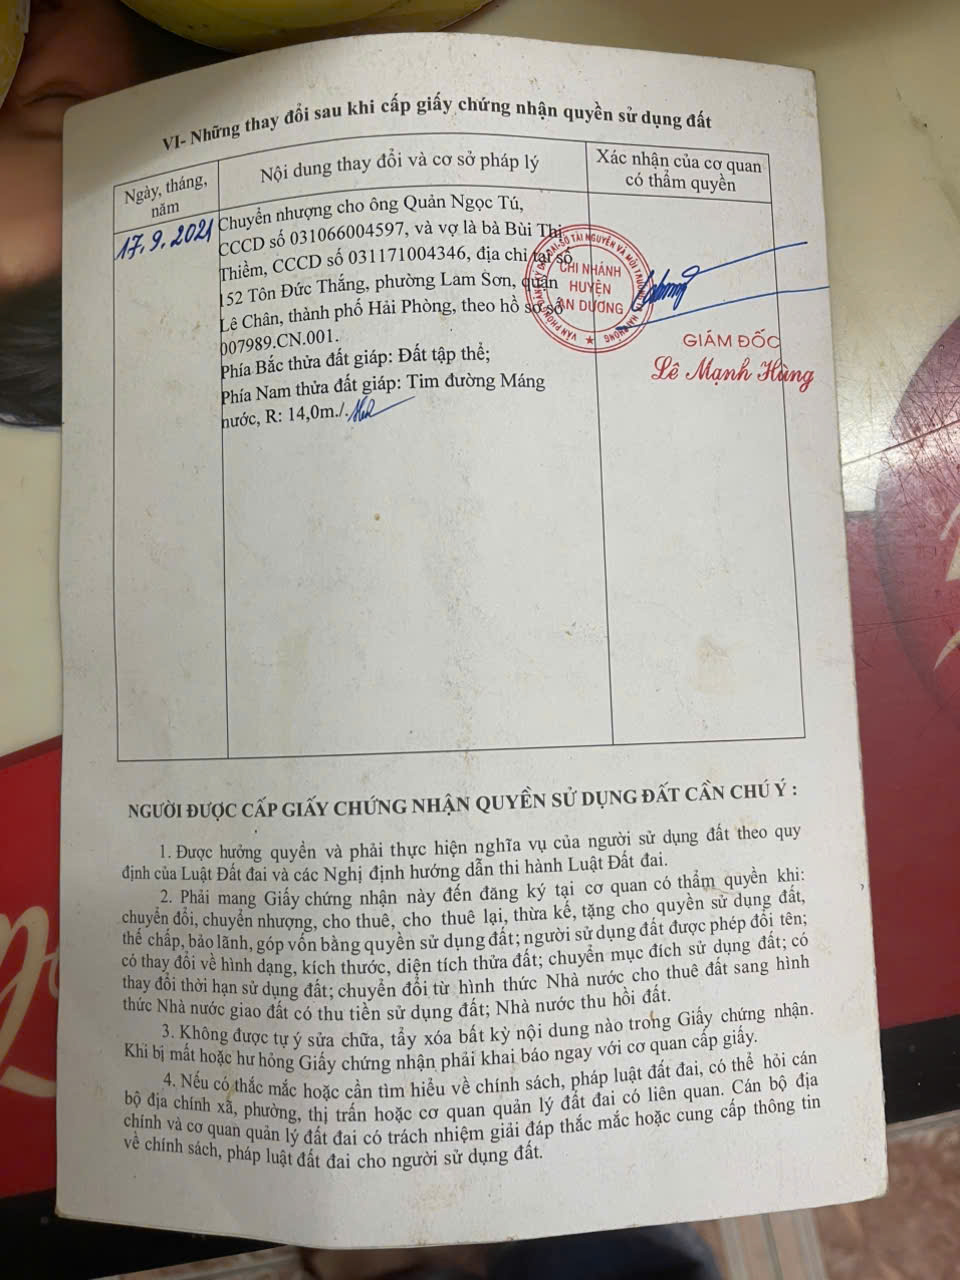 VI- Những thay đổi sau khi cấp giấy chứng nhận quyền sử dụng đất
Ngày, tháng, năm
Nội dung thay đổi và cơ sở pháp lý
Xác nhận của cơ quan có thẩm quyền
17.9.2021
Chuyển nhượng cho ông Quản Ngọc Tú,
CCCD số 031066004597, và vợ là bà Bùi Thị
Thiềm, CCCD số 031171004346, địa chỉ tại số
152 Tôn Đức Thắng, phường Lam Sơn, quận
Lê Chân, thành phố Hải Phòng, theo hồ sơ số
007989.CN.001.
Phía Bắc thửa đất giáp: Đất tập thể;
Phía Nam thửa đất giáp: Tim đường Máng
nước, R: 14,0m./.
CHI NHÁNH
HUYỆN
AN DƯƠNG
GIÁM ĐỐC
Lê Mạnh Hùng
NGƯỜI ĐƯỢC CẤP GIẤY CHỨNG NHẬN QUYỀN SỬ DỤNG ĐẤT CẦN CHÚ Ý :
1. Được hưởng quyền và phải thực hiện nghĩa vụ của người sử dụng đất theo quy
định của Luật Đất đai và các Nghị định hướng dẫn thi hành Luật Đất đai.
2. Phải mang Giấy chứng nhận này đến đăng ký tại cơ quan có thẩm quyền khi:
chuyển đổi, chuyển nhượng, cho thuê, cho thuê lại, thừa kế, tặng cho quyền sử dụng đất,
thế chấp, bảo lãnh, góp vốn bằng quyền sử dụng đất; người sử dụng đất được phép đổi tên;
có thay đổi về hình dạng, kích thước, diện tích thửa đất; chuyển mục đích sử dụng đất; có
thay đổi thời hạn sử dụng đất; chuyển đổi từ hình thức Nhà nước cho thuê đất sang hình
thức Nhà nước giao đất có thu tiền sử dụng đất; Nhà nước thu hồi đất.
3. Không được tự ý sửa chữa, tẩy xóa bất kỳ nội dung nào trong Giấy chứng nhận.
Khi bị mất hoặc hư hỏng Giấy chứng nhận phải khai báo ngay với cơ quan cấp giấy.
4. Nếu có thắc mắc hoặc cần tìm hiểu về chính sách, pháp luật đất đai, có thể hỏi cán
bộ địa chính xã, phường, thị trấn hoặc cơ quan quản lý đất đai có liên quan. Cán bộ địa
chính và cơ quan quản lý đất đai có trách nhiệm giải đáp thắc mắc hoặc cung cấp thông tin
về chính sách, pháp luật đất đai cho người sử dụng đất.